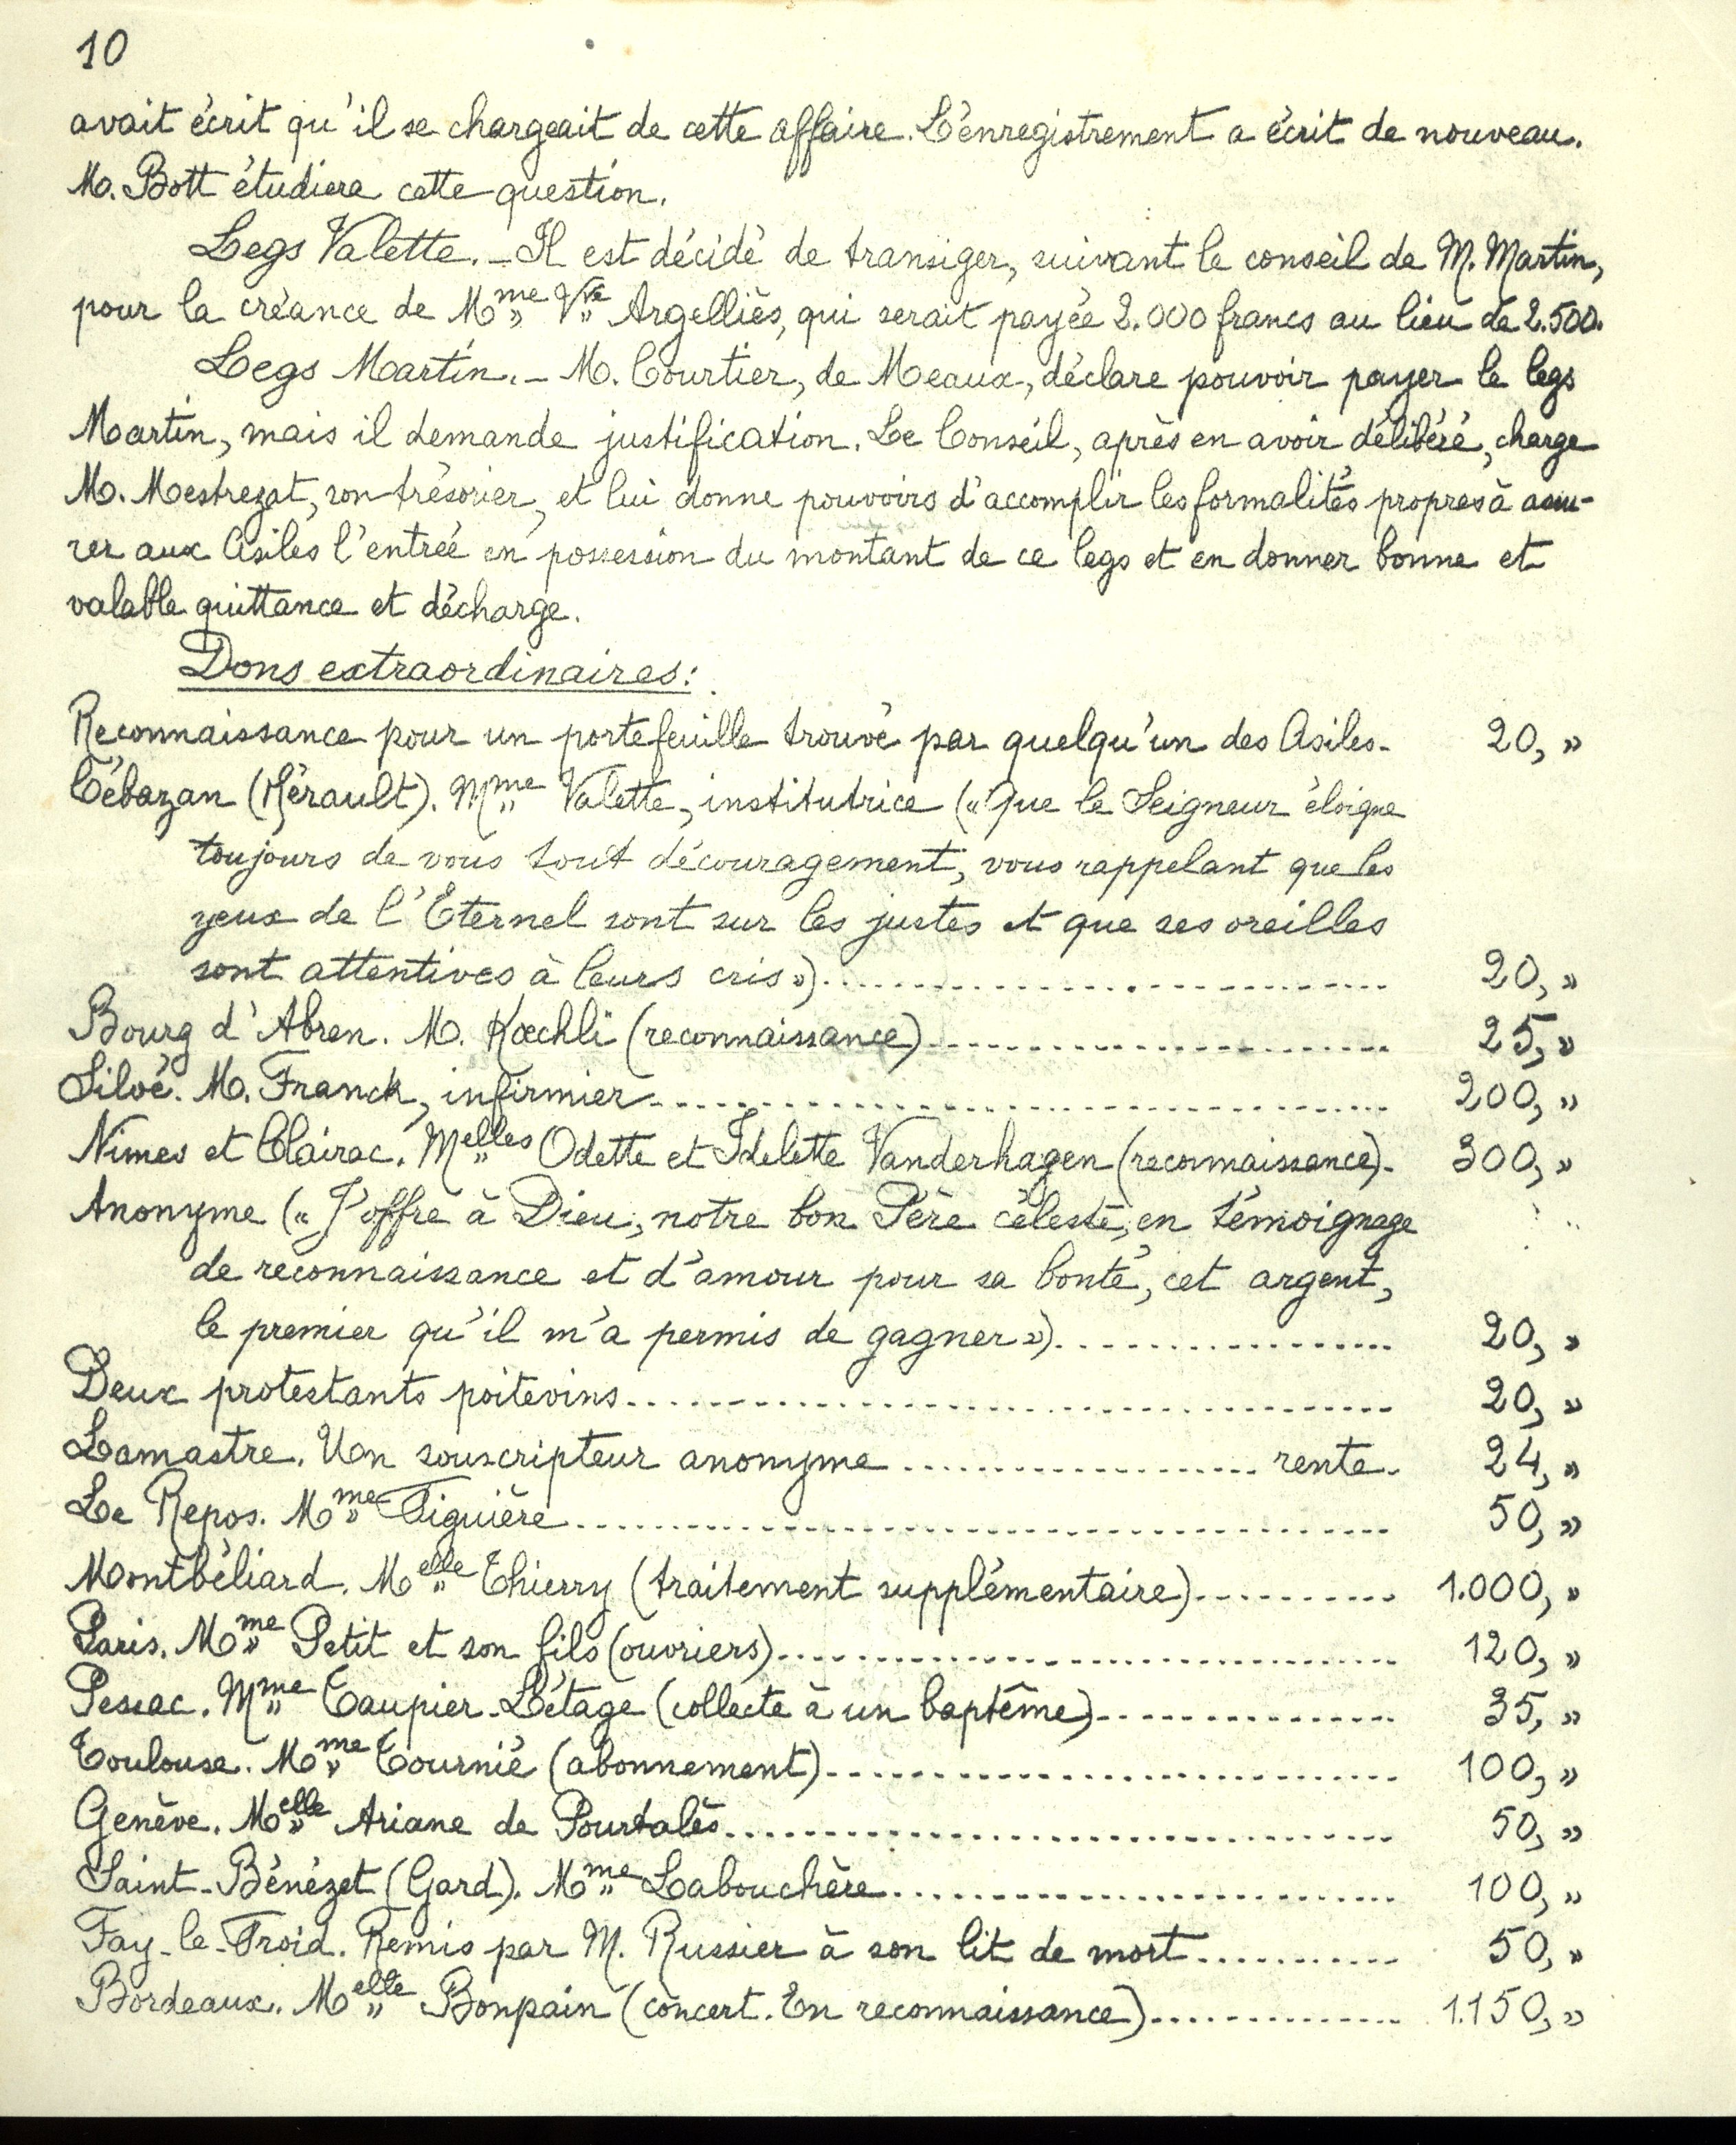 10
avait écrit qu'il se chargeait de cette affaire. L'énregistrement a écrit de nouveau.
M. Bott étudiera cette question.
Legs Valette. _ Il est décidé de transiger, suivant le conseil de M. Martin,
pour la créance de Mme Vve Argelliès, qui serait payée 2.000 francs au lieu de 2.500.
Legs Martin. _ M. Courtier, de Meaux, déclare pouvoir payer le legs
Martin, mais il demande justification. Le Conseil, après en avoir délibéré, charge
M. Mestrezat, son trésorier, et lui donne pouvoirs d'accomplir les formalités propres à assu-
rer aux Asiles l'entrée en possession du montant de ce legs et en donner bonne et
valable quittance et décharge.
Dons extraordinaires:
Reconnaissance pour un portefeuille trouvé par quelqu'un des Asiles. 20, »
Cébazan (Hérault). Mme Valette, institutrice (« Que le Seigneur éloigne
toujours de vous tout découragement, vous rappelant que les
yeux de l'Eternel sont sur les justes et que ses oreilles
sont attentives à leurs cris »)........ 20, »
Bourg d'Abren. M. Kœchli (reconnaissance)........ 25, »
Siloé. M. Franck, infirmier........ 200, »
Nimes et Clairac. Melles Odette et Idelette Vanderhagen (reconnaissance). 300, »
Anonyme (« J'offre à Dieu, notre bon Père céleste, en témoignage
de reconnaissance et d'amour pour sa bonté, cet argent,
le premier qu'il m'a permis de gagner »)........ 20, »
Deux protestants poitevins........ 20, »
Lamastre. Un souscripteur anonyme ........ rente. 24, »
Le Repos. Mme Figuière........ 50, »
Montbéliard. Melle Thierry (traitement supplémentaire)........ 1.000, »
Paris. Mme Petit et son fils (ouvriers)........ 120, »
Pessac. Mme Taupier-Létage (collecte à un baptême)........ 35, »
Toulouse. Mme Tournié (abonnement)........ 100, »
Genève. Melle Ariane de Pourtalès........ 50, »
Saint-Bénézet (Gard). Mme Labouchère........ 100, »
Fay-le-Froid. Remis par M. Russier à son lit de mort........ 50, »
Bordeaux. Melle Bonpain (concert. En reconnaissance)........ 1.150, »